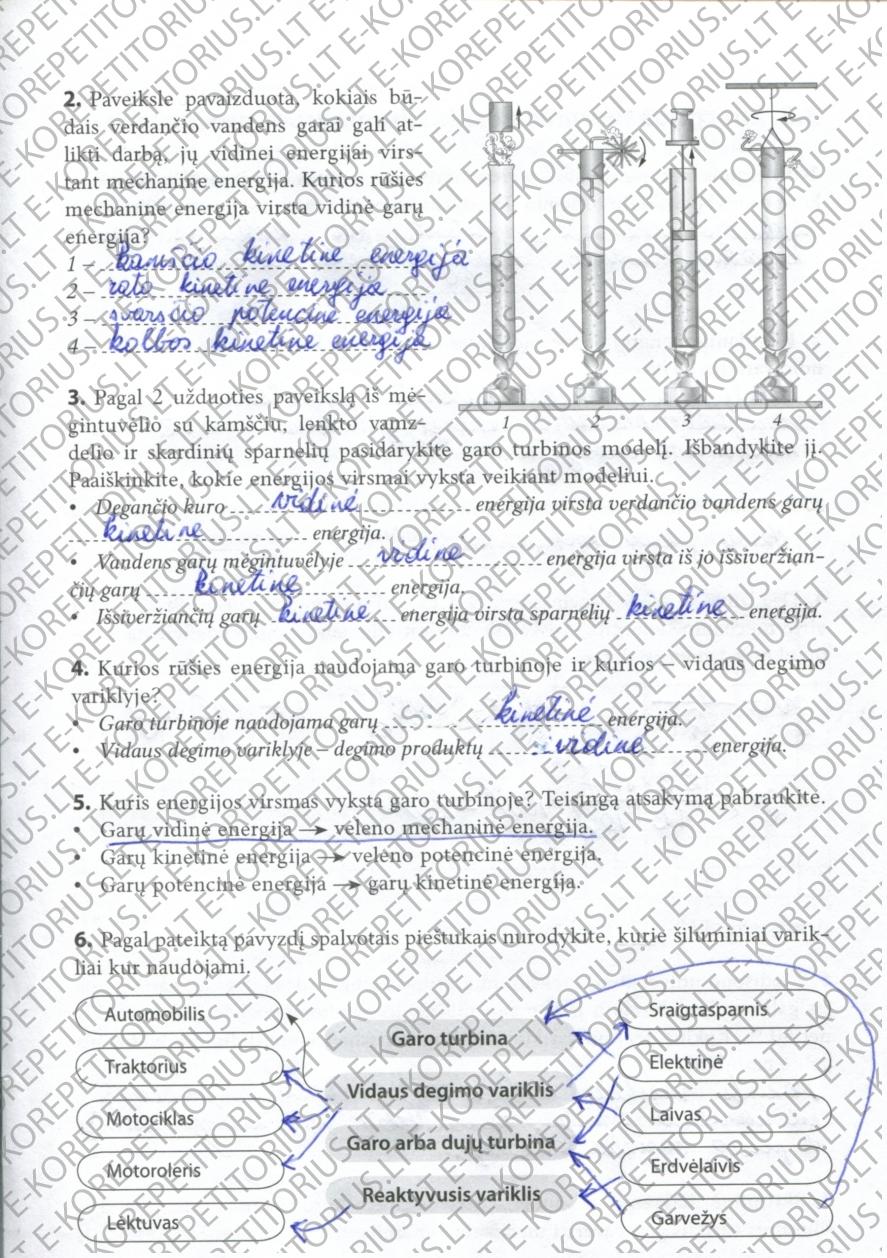 2. Paveiksle pavaizduota, kokiais bū-
dais verdančio vandens garai gali at-
likti darbą, jų vidinei energijai virs-
tant mechanine energija. Kurios rūšies
mechanine energija virsta vidinė garų
energija?
1 – kamščio kinetinė energija
2 – rato kinetinė energija
3 – svarsčio potencinė energija
4 – kolbos kinetinė energija
1 2 3 4
3. Pagal 2 užduoties paveikslą iš mė-
gintuvėlio su kamščiu, lenkto vamz-
delio ir skardinių sparnelių pasidarykite garo turbinos modelį. Išbandykite jį.
Paaiškinkite, kokie energijos virsmai vyksta veikiant modeliui.
• Degančio kuro vidinė energija virsta verdančio vandens garų
kinetine energija.
• Vandens garų mėgintuvėlyje vidinė energija virsta iš jo išsiveržian-
čių garų kinetine energija.
• Išsiveržiančių garų kinetinė energija virsta sparnelių kinetine energija.
4. Kurios rūšies energija naudojama garo turbinoje ir kurios – vidaus degimo
variklyje?
• Garo turbinoje naudojama garų kinetinė energija.
• Vidaus degimo variklyje – degimo produktų vidinė energija.
5. Kuris energijos virsmas vyksta garo turbinoje? Teisingą atsakymą pabraukite.
• Garų vidinė energija → veleno mechaninė energija.
• Garų kinetinė energija → veleno potencinė energija.
• Garų potencinė energija → garų kinetinė energija.
6. Pagal pateiktą pavyzdį spalvotais pieštukais nurodykite, kurie šiluminiai varik-
liai kur naudojami.
Automobilis
Traktorius
Motociklas
Motoroleris
Lėktuvas
Garo turbina
Vidaus degimo variklis
Garo arba dujų turbina
Reaktyvusis variklis
Sraigtasparnis
Elektrinė
Laivas
Erdvėlaivis
Garvežys
E-KOREPETITORIUS.LT